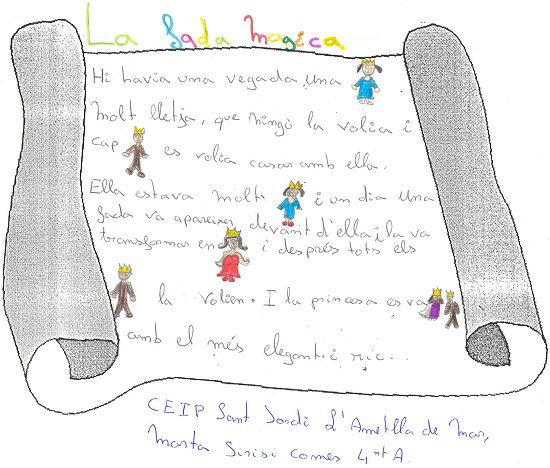 La fada magica
Hi havia una vegada una
molt lletja, que ningú la volia i
cap es volia casar amb ella.
Ella estava molt i un dia una
fada va apareixer devant d'ella i la va
transformar en i després tots els
la volien. I la princesa es va
amb el més elegant i ric...
CEIP Sant Jordi L'Ametlla de Mar,
Marta Sirisi Comes 4rt A.